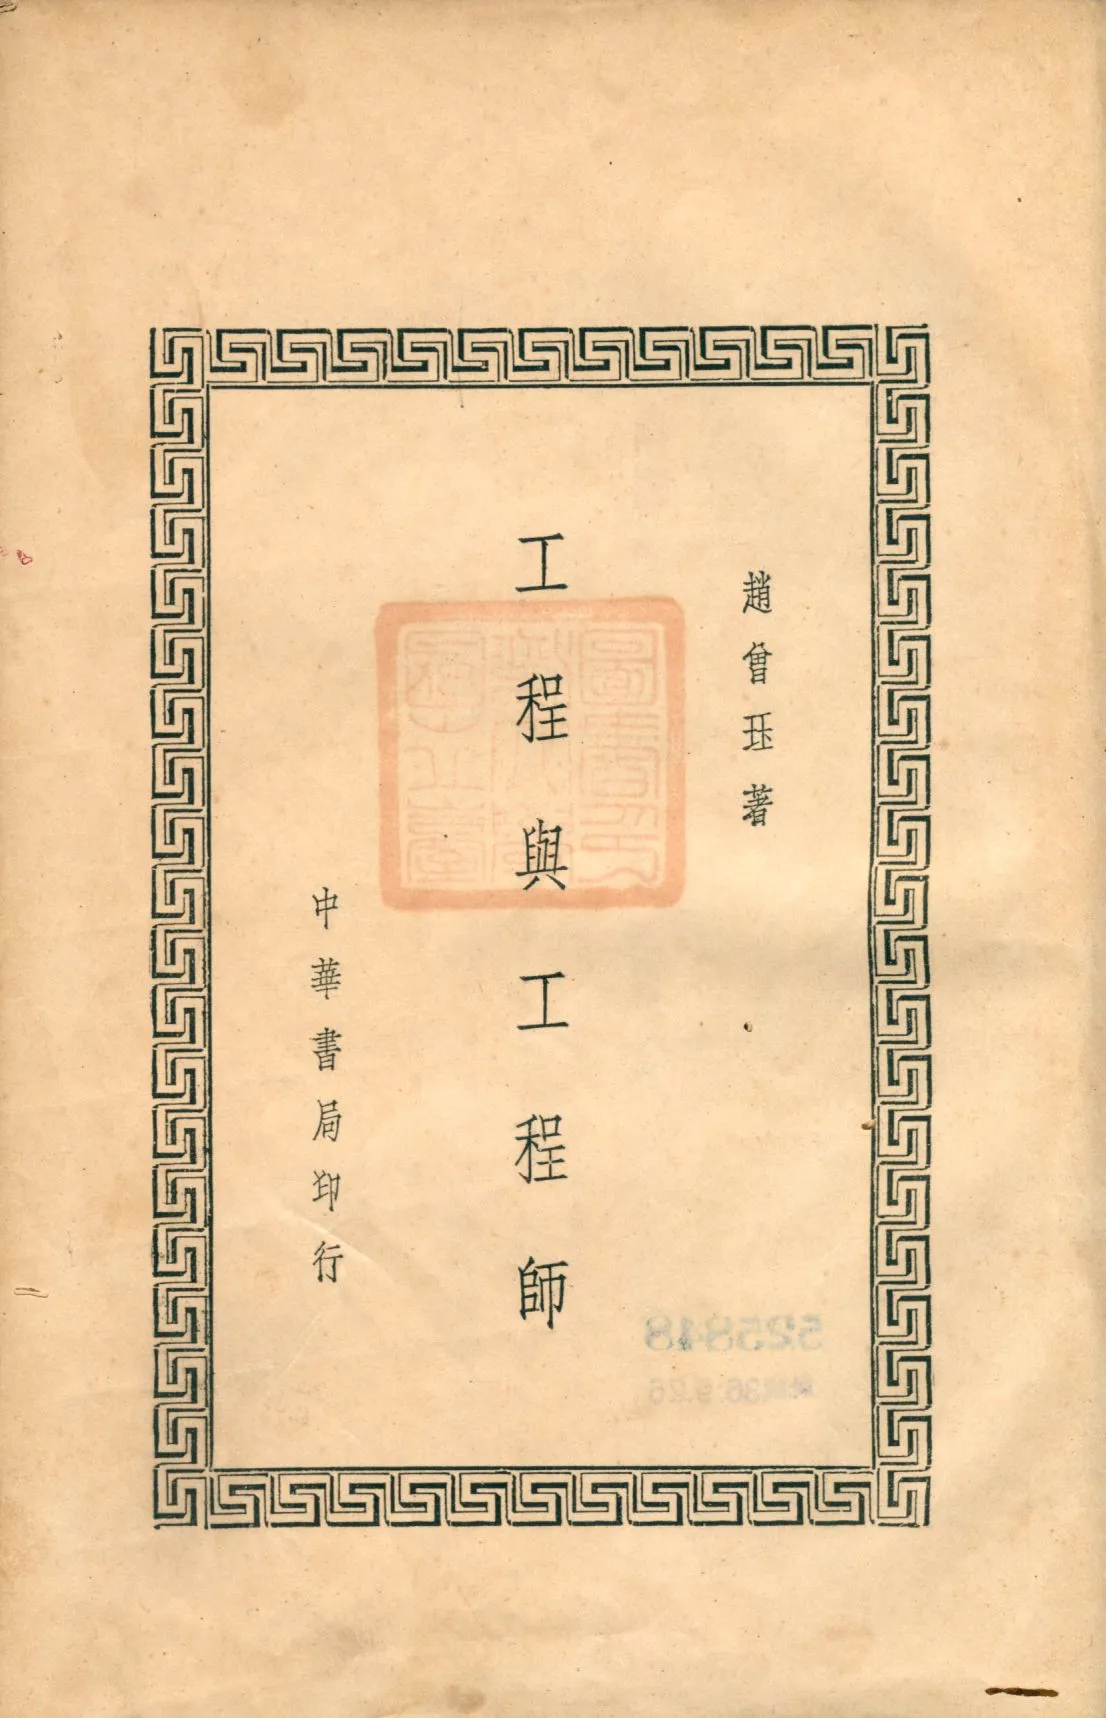 趙曾珏著
工程與工程師
中華書局印行
525848
36.9.26